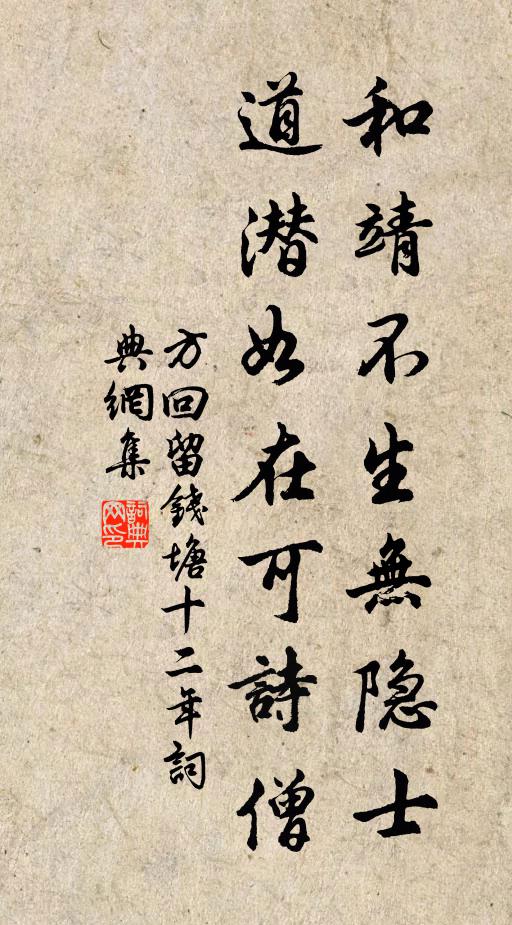 和靖不生無隐士
道潜如在可詩僧
方回留錢塘十二年詞
典網集
詞典網印